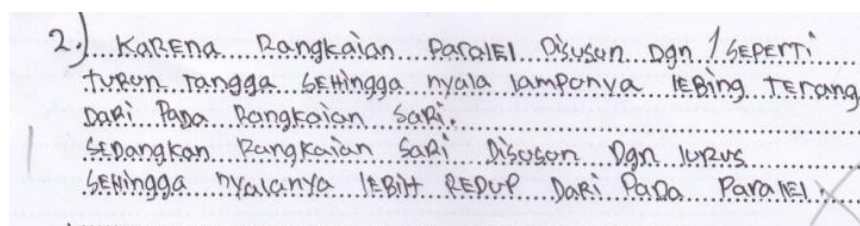 2.) KaRENa Rangkaian ParalEl Disusun Dgn / SEPERTi
tuRun Tangga SEHingga nyala lampunya lEBing TErang
DaRi PaDa Rangkaian SaRi.
SEDangkan Rangkaian SaRi Disusun Dgn luRus
SEHingga nyalanya lEBiH REDuP DaRi PaDa ParalEl.